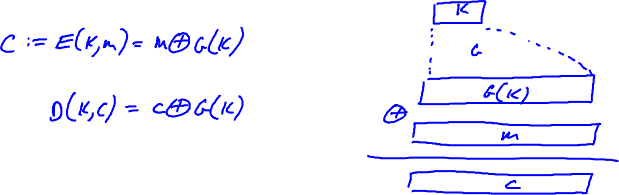 C := E(K,m) = m⊕G(K)
D(K,c) = c⊕G(K)
K
G
G(K)
⊕
m
c